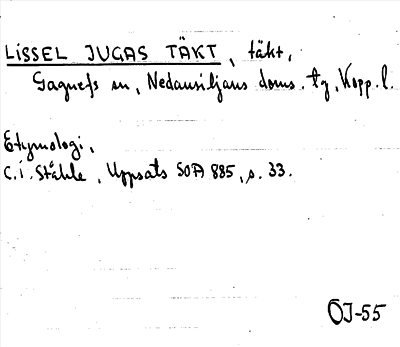 LISSEL JUGAS TÄKT, täkt,
Gagnefs sn, Nedansiljans doms. tg, Kopp. l.
Etymologi,
C. I. Ståhle, Uppsats SOA 885, s. 33.
ÖJ-55